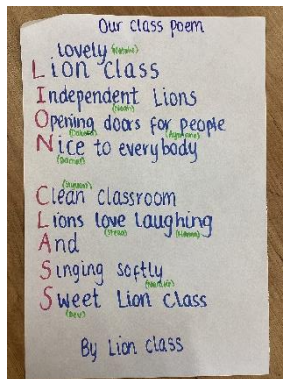 Our class poem
lovely
Lion Class
Independent Lions
Opening doors for people
Nice to everybody
Clean Classroom
Lions love laughing
And
Singing softly
Sweet Lion Class
By Lion class